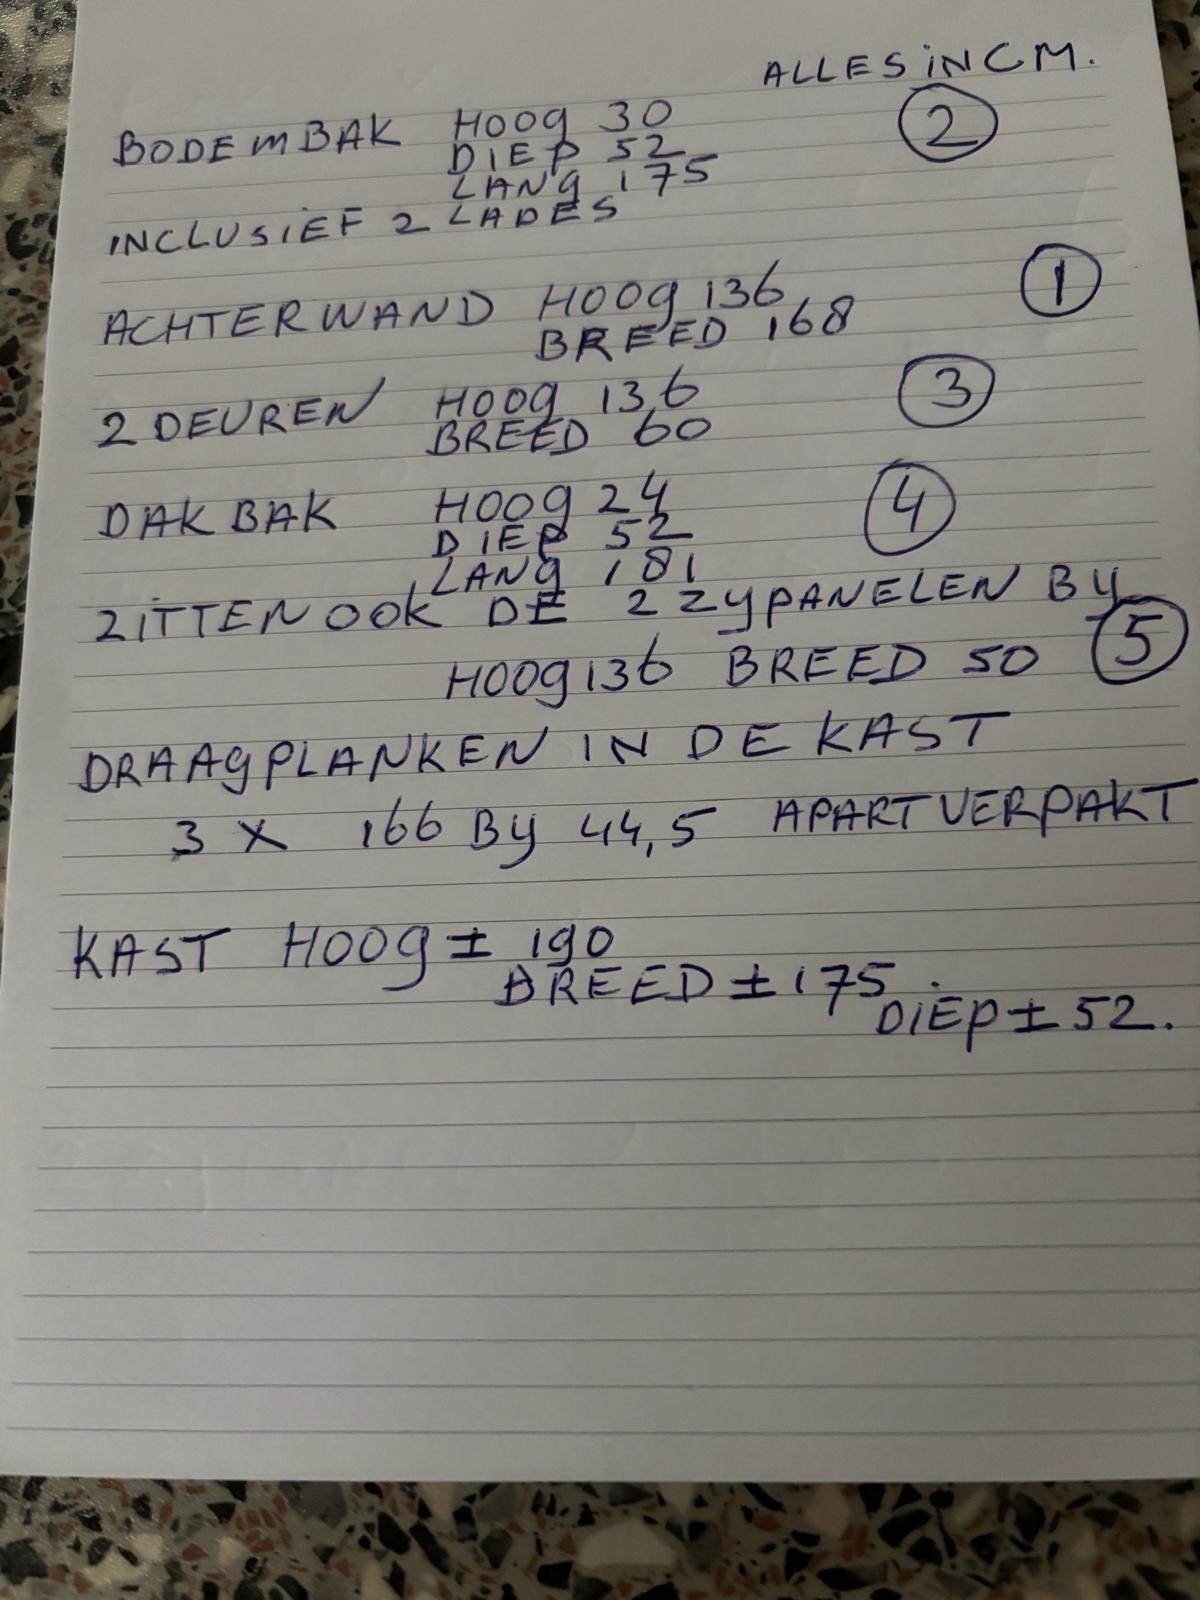 ALLES IN CM.
BODEMBAK HOOG 30 2
DIEP 52
LANG 175
INCLUSIEF 2 LADES
ACHTERWAND HOOG 136 1
BREED 168
2 DEUREN HOOG 136 3
BREED 60
DAKBAK HOOG 24 4
DIEP 52
LANG 181
ZITTEN OOK DE 2 ZYPANELEN BY
HOOG 136 BREED 50 5
DRAAGPLANKEN IN DE KAST
3 X 166 BY 44,5 APART VERPAKT
KAST HOOG ± 190
BREED ± 175.
DIEP ± 52.